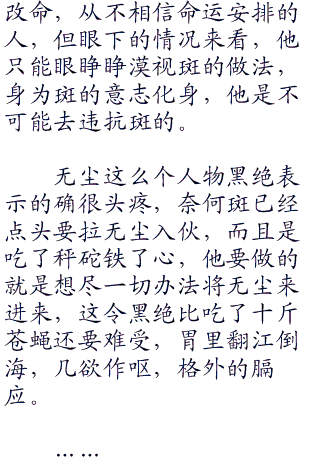 改命，从不相信命运安排的
人，但眼下的情况来看，他
只能眼睁睁漠视斑的做法，
身为斑的意志化身，他是不
可能去违抗斑的。
无尘这么个人物黑绝表
示的确很头疼，奈何斑已经
点头要拉无尘入伙，而且是
吃了秤砣铁了心，他要做的
就是想尽一切办法将无尘来
进来，这令黑绝比吃了十斤
苍蝇还要难受，胃里翻江倒
海，几欲作呕，格外的膈
应。
……